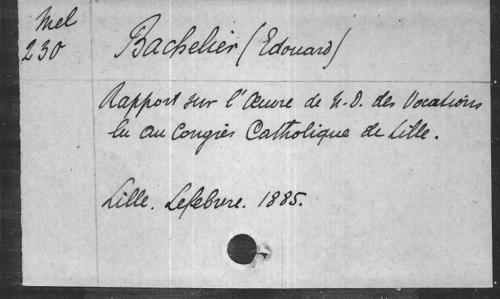 Mel
230
Bachelier (Edouard)
Rapport sur l'Œuvre de N.-D. des Vocations
lu au Congrès Catholique de Lille.
Lille. Lefebvre. 1885.